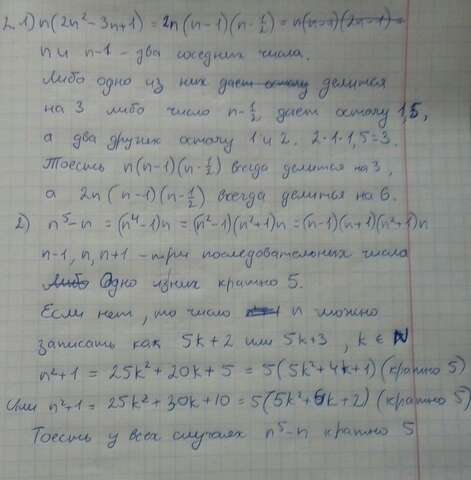 2. 1) n(2n²-3n+1) = 2n(n-1)(n-1/2) = n(n-1)(2n-1) =
n и n-1 - два соседних числа.
Либо одно из них дает остачу делится
на 3 либо число n-1/2 дает остачу 1,5,
а два других остачу 1 и 2. 2·1·1,5=3.
Тоесть n(n-1)(n-1/2) всегда делится на 3,
а 2n(n-1)(n-1/2) всегда делится на 6.
2) n⁵-n = (n⁴-1)n = (n²-1)(n²+1)n = (n-1)(n+1)(n²+1)n
n-1, n, n+1 - три последовательных числа
Либо Одно из них кратно 5.
Если нет, то число n можно
записать как 5k+2 или 5k+3, k ∈ N
n²+1 = 25k²+20k+5 = 5(5k²+4k+1) (кратно 5)
Или n²+1 = 25k²+30k+10 = 5(5k²+6k+2) (кратно 5)
Тоесть у всех случаях n⁵-n кратно 5